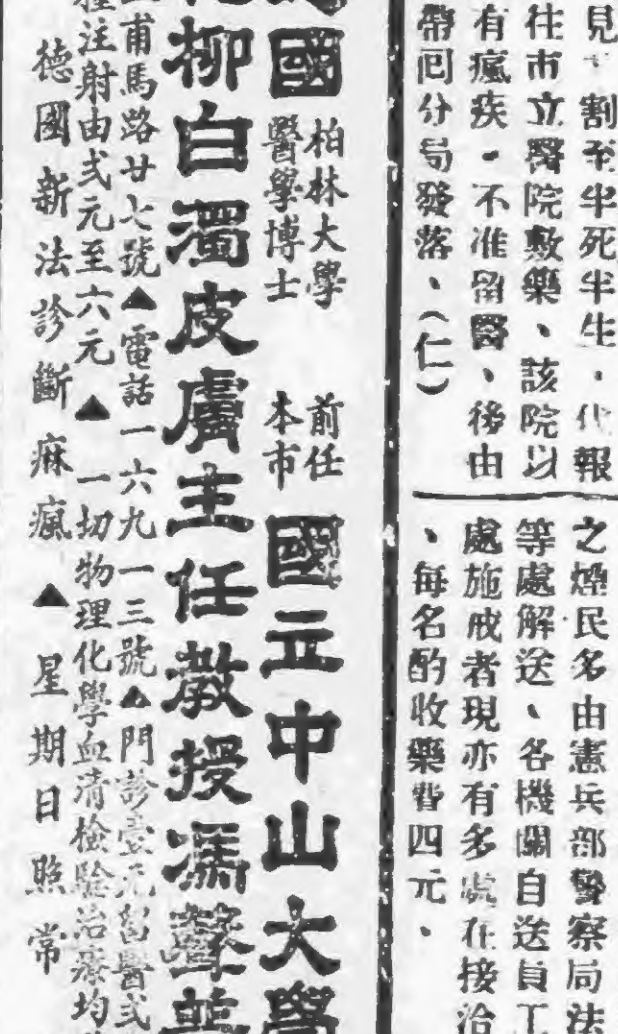 見 割至半死半生、代報
往市立醫院敷藥、該院以
有瘋疾、不准留醫、後由
帶回分局發落、(仁)
之煙民多由憲兵部警察局法
等處解送、各機關自送員工
處施戒者現亦有多 在接洽
、每名酌收藥費四元、
國 柏林大學
醫學博士 前任
本市 國立中山大學
柳白濁皮膚主任教授馮聲
甫馬路廿七號▲電話一六九一三號▲門診壹元留醫式
注射由式元至六元▲一切物理化學血清檢驗治療均
德國新法診斷麻瘋▲星期日照常